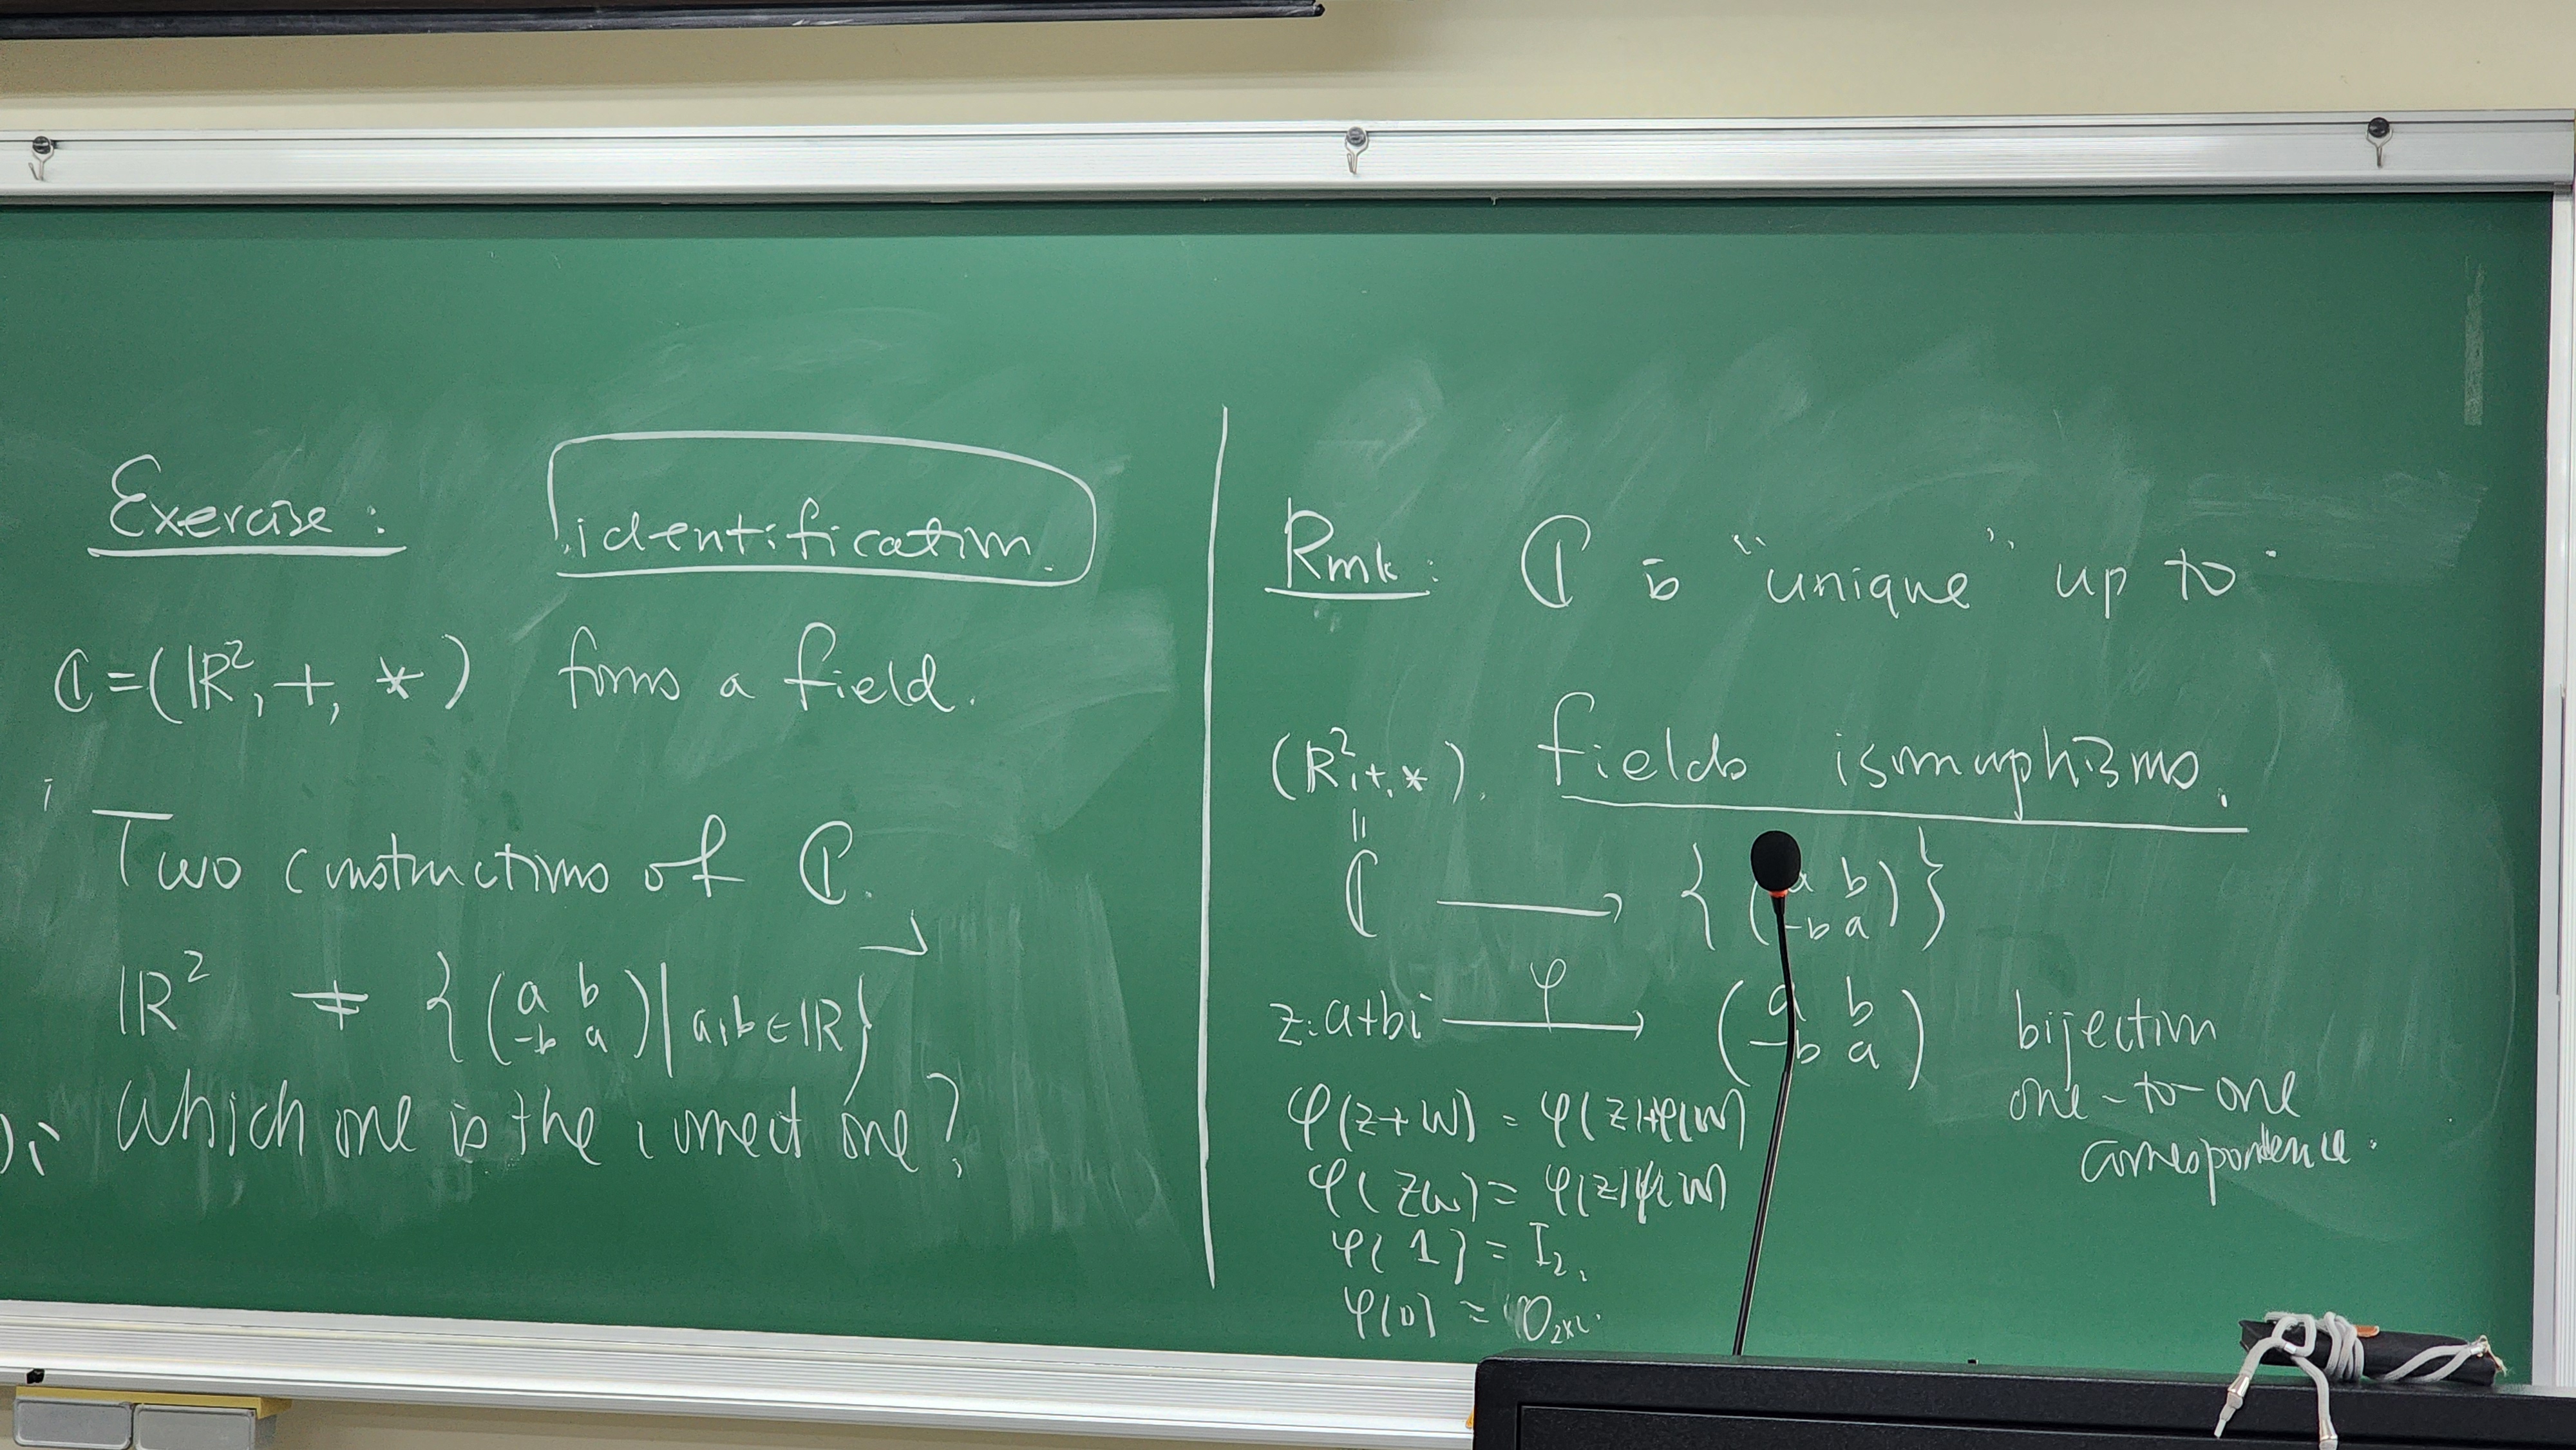 Exercise:
identification.
ℂ=(ℝ², +, *) forms a field.
Two constructions of ℂ.
ℝ² ≠ {(a b -b a) | a,b∈ℝ}
Which one is the correct one?
Rmk: ℂ is "unique" up to
fields isomorphisms.
(ℝ²,+,*).
=
ℂ ⟶ {(a b -b a)}
z=a+bi ⟶ (a b -b a) bijection
φ
one-to-one
correspondence.
φ(z+w) = φ(z)+φ(w)
φ(zw) = φ(z)φ(w)
φ(1) = I₂.
φ(0) = O₂ₓ₂.